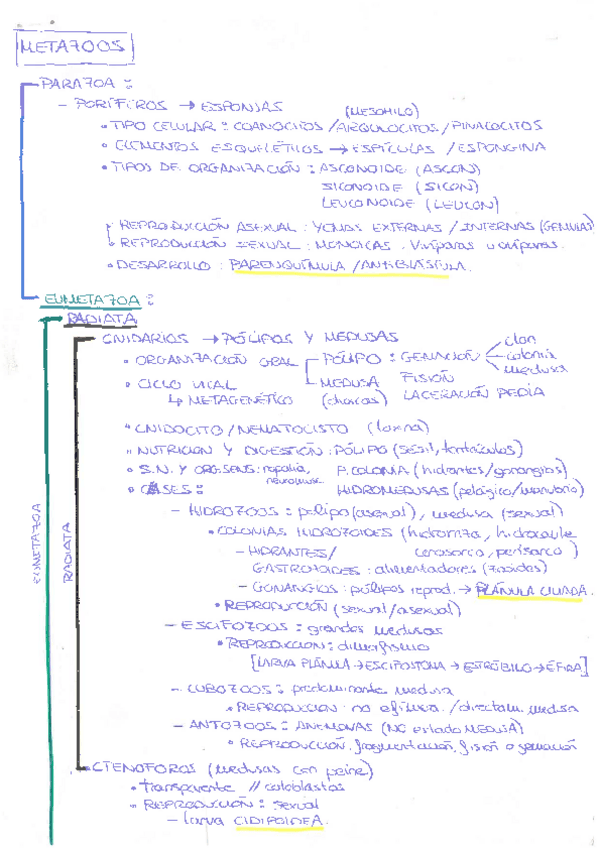 METAZOOS
PARAZOA :
- PORÍFEROS → ESPONJAS (MESOHILO)
• TIPO CELULAR : COANOCITOS / ARQULOCITOS / PINALOCITOS
• ELEMENTOS ESQUELÉTICOS → ESPÍCULAS / ESPONGINA
• TIPOS DE ORGANIZACIÓN : ASCONOIDE (ASCON)
SICONOIDE (SICON)
LEUCONOIDE (LEUCON)
• REPRODUCCIÓN ASEXUAL : YEMAS EXTERNAS / INTERNAS (GEMULAS)
• REPRODUCCIÓN SEXUAL : MONOICAS. Vivíparas u ovíparas.
• DESARROLLO : PARENQUÍMULA / ANFIBLÁSTULA.
EUMETAZOA :
RADIATA
CNIDARIOS → PÓLIPOS Y MEDUSAS
• ORGANIZACIÓN ORAL PÓLIPO : GEMACIÓN clon
colonia
medusa
• CICLO VITAL MEDUSA FISIÓN
↳ METAGENÉTICO LACERACIÓN PEDIA
• CNIDOCITO / NEMATOCISTO (toxina)
• NUTRICION Y DIGESTIÓN : PÓLIPO (sésil, tentáculos)
• S.N. Y ORG. SENS : ropalia, P. COLONIA (hidrantes/gonangios)
• CLASES : HIDROMEDUSAS (pelágico/manubrio)
- HIDROZOOS : pólipo (asexual), medusa (sexual)
• COLONIAS HIDROZOIDES (hidrorriza, hidrocaule
cenosarco, perisarco)
- HIDRANTES/
GASTROZOIDES : alimentadores (zooides)
- GONANGIOS : pólipos reprod. → PLÁNULA CILIADA.
• REPRODUCCIÓN (sexual/asexual)
- ESCIFOZOOS : grandes medusas
• REPRODUCCION : dimorfismo
[LARVA PLÁNULA → ESCIFISTOMA → ESTRÓBILO → ÉFIRA]
- CUBOZOOS : predominante medusa
• REPRODUCCION : no efirica / directam. medusa
- ANTOZOOS : ANEMONAS (NO estado MEDUSA)
• REPRODUCCIÓN. fragmentación, fisión o gemación
CTENOFOROS (medusas con peine)
• transparente // coloblastos
• REPRODUCCIÓN : sexual
- larva CIDIPOIDEA.
EUMETAZOA
RADIATA